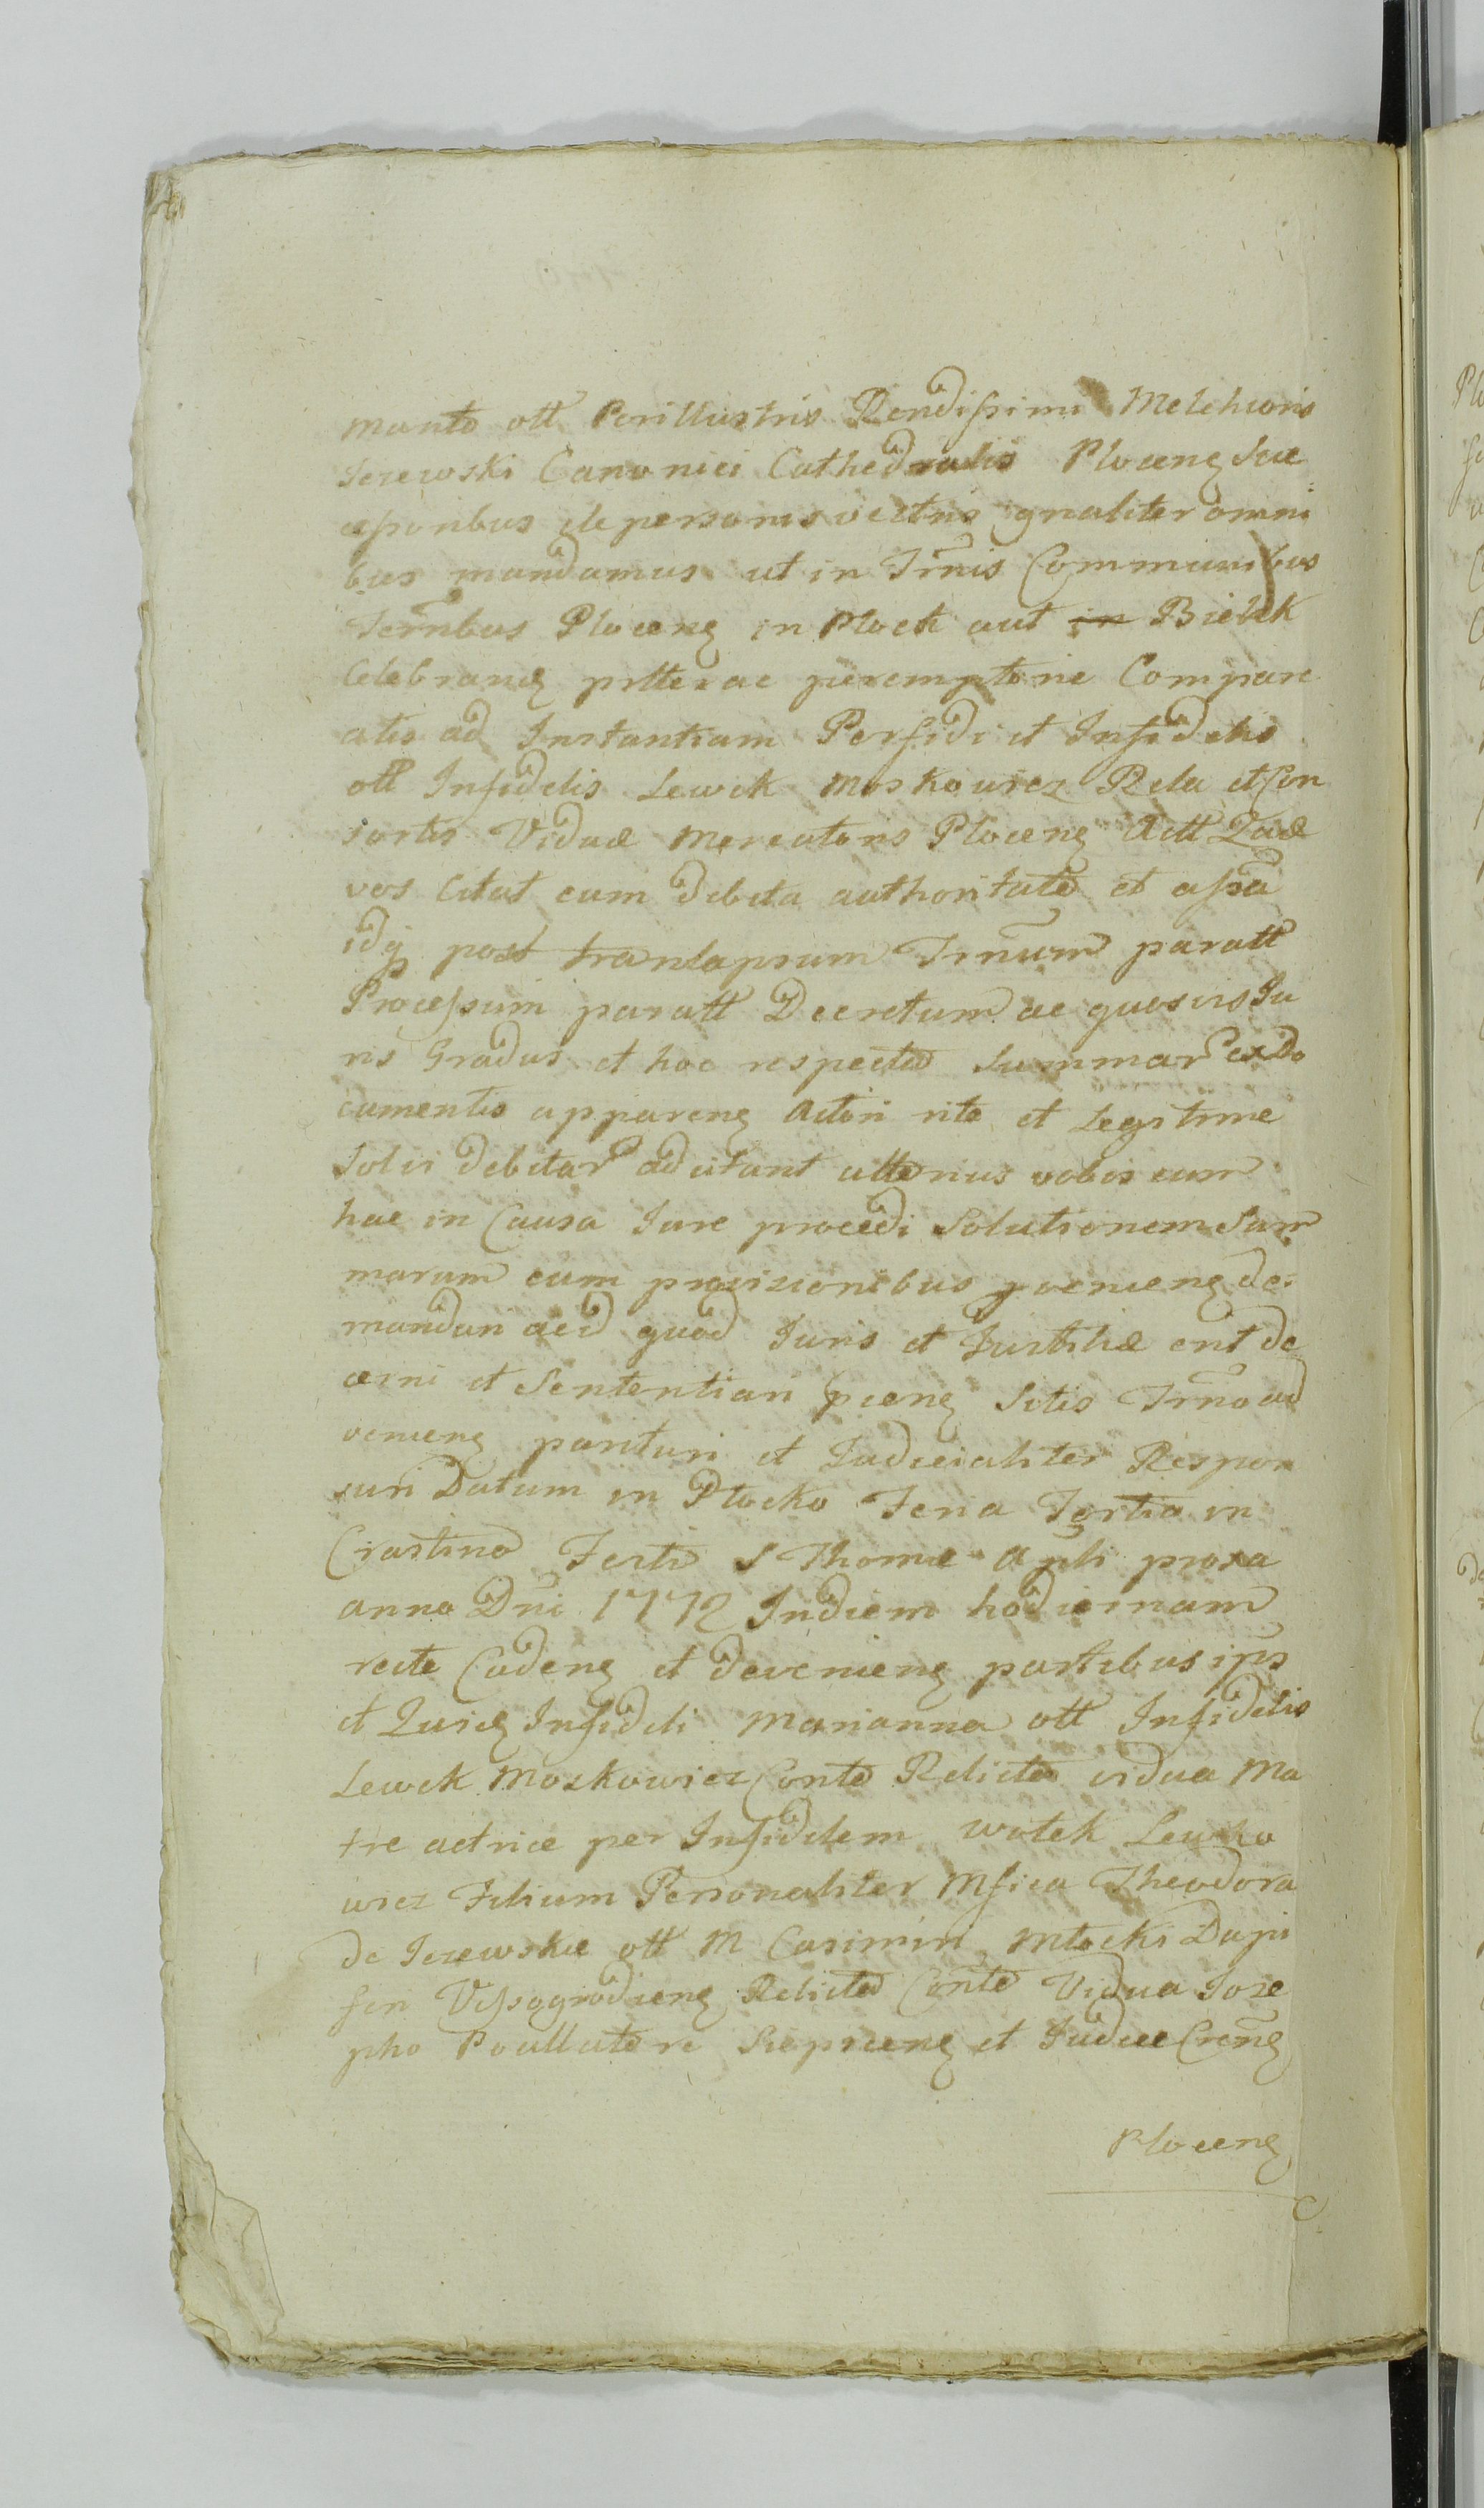 manto olt Perillustris Rendissimi Melchioris
Jezewski Canonici Cathedralis Plocens Suc
cessoribus de personis vestris gnaliter omni
bus mandamus ut in Trnis Communibus
Terrnbus Plocens in Plock aut in Bielsk
Celebrand pltter ac peremptorie Compare
atis ad Instantiam Perfidi et Infidelis
olt Infidelis Lewek Moskowicz Rela et Con
sortis Viduæ Mercatoris Plocens Act Quæ
vos Citat cum debita authoritate et assa
idq post translapsum Trnum paratt
Processum paratt Decretum ac quosvis Ju
ris Gradus et hoc respectu Summar ex Do
cumentis apparens Actori rite et Legitime
Solvi debitar adcitant ulterius vobis cum
hac in Causa Jure procedi Solutionem Sum
marum cum provizionibus proveniens de
mandan aeid quod Juris et Justitiæ erit de
cerni et Sententiari pcens Sitis Trno ad
veniens parituri et Judicialiter Respon
suri Datum in Plocko Feria Tertia in
Crastino Festi S Thomæ Apli proxa
anno Dni 1772 In diem hodiernam
recte Cadens et deveniens partibus ipis
et Quid Infideli Marianna olt Infidelis
Lewek Moskowicz Conte Relicta vidua Ma
tre actrice per Infidelem Wolek Lewko
wicz Filium Personaliter Mfica Theodora
de Jezewskie olt M Casimiri Młocki Dapi
feri Vissogrodiens Relicta Conte Vidua Joze
pho Pocillatore Sieprcens et Judice Crens
Plocens